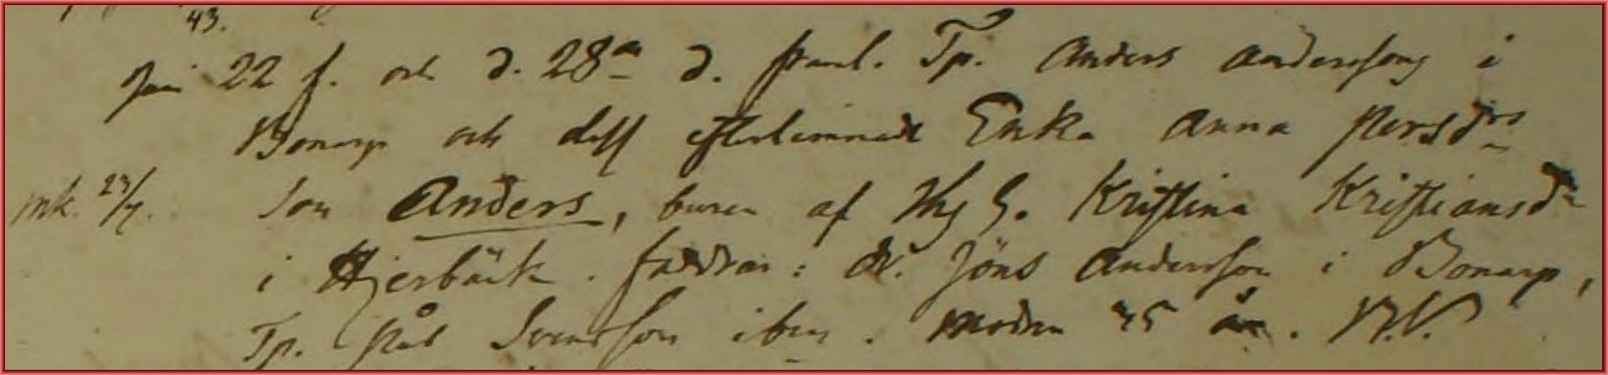 43.
Juni 22 f. och d. 28de d. framl. Tp. Anders Anderssons i
Bonarp och dess efterlemnade Enka Anna Persdrs
mk. 23/7. Son Anders, buren af Hu G. Kristina Kristiansdr
i Hjerbäck. faddrar: Dr. Jöns Andersson i Bonarp,
Tp. Pål Svensson ibm. Modren 45 år. N.V.